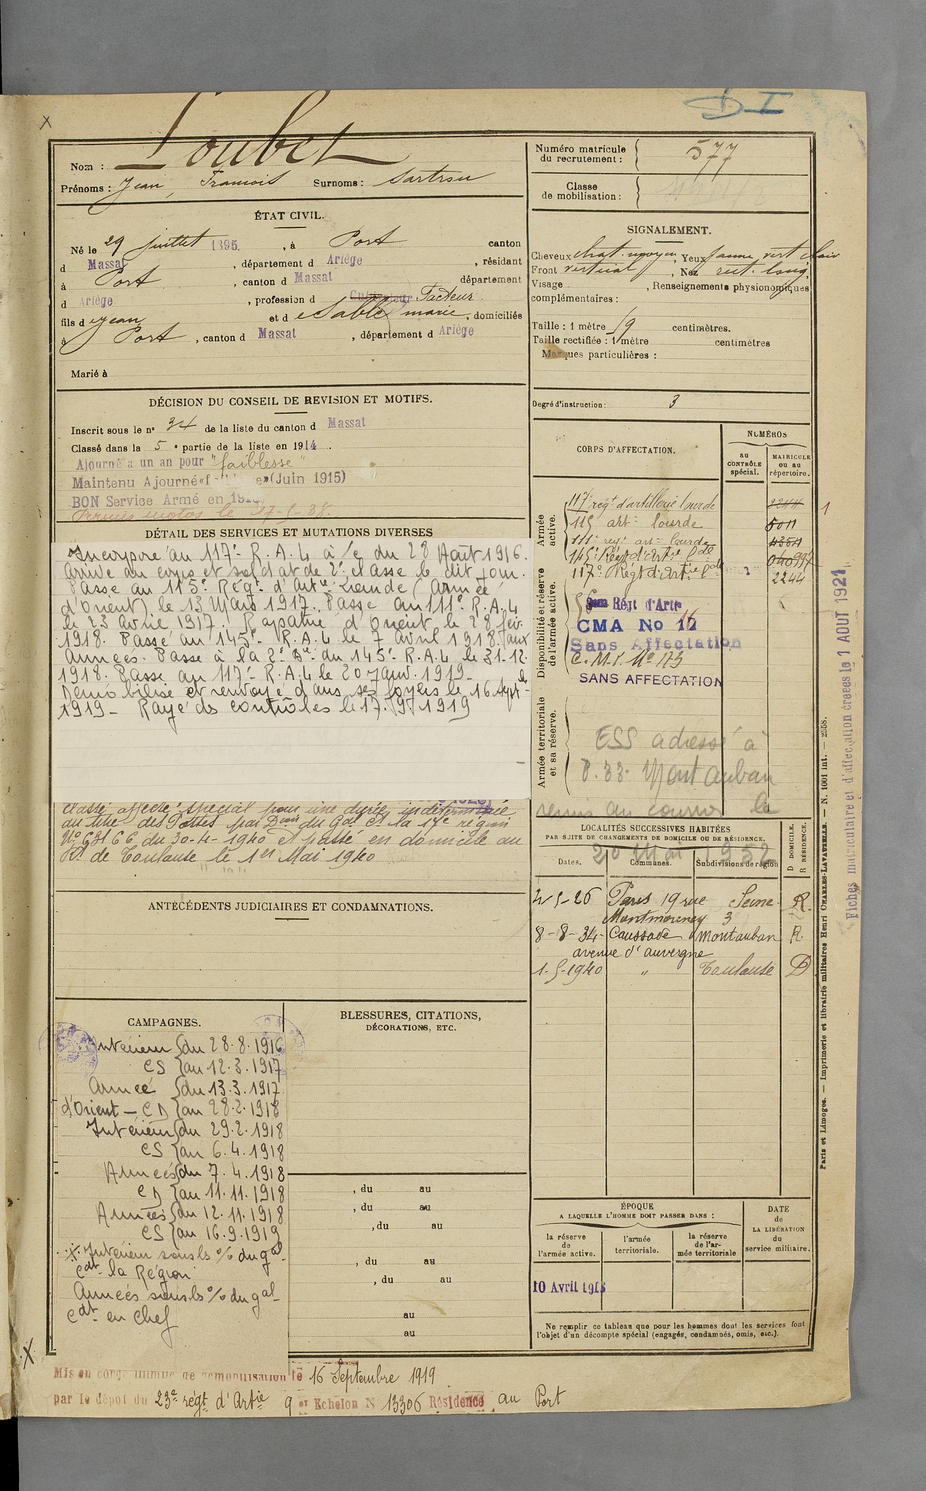 D I
Nom : Loubet
Prénoms : Jean, François Surnoms : Sartrou
Numéro matricule
du recrutement : 577
Classe
de mobilisation :
ÉTAT CIVIL.
Né le 29 juillet 1895, à Port canton
d Massat, département d Ariège, résidant
à Port, canton d Massat département
d Ariège, profession d Facteur
fils d Jean et d marie, domiciliés
à Port, canton d Massat, département d Ariège
Marié à
SIGNALEMENT.
Cheveux chat. moyen, Yeux jaune vert clair
Front vertical, Nez rect. long.
Visage , Renseignements physionomiques
complémentaires :
Taille : 1 mètre 59 centimètres.
Taille rectifiée : 1 mètre centimètres
Marques particulières :
Degré d'instruction : 3
DÉCISION DU CONSEIL DE REVISION ET MOTIFS.
Inscrit sous le n° 34 de la liste du canton d Massat
Classé dans la 5e partie de la liste en 1914.
Ajourné a un an pour "faiblesse"
Maintenu Ajourné (Juin 1915)
BON Service Armé en
DÉTAIL DES SERVICES ET MUTATIONS DIVERSES
Incorporé au 117e R.A.L à /c du 28 Août 1916.
Arrivé au corps et soldat de 2e classe le dit jour.
Passé au 115e Régt d'Artie Lourde (Armée
d'Orient) le 13 Mars 1917. Passé au 111e R.A.L
le 23 avril 1917. Rapatrié d'Orient le 28 fév.
1918. Passé au 145e R.A.L le 7 avril 1918. Aux
Armées. Passé à la 2e Bie du 145e R.A.L le 31.12.
1918. Passé au 117e R.A.L le 20 janv. 1919.
Démobilisé et renvoyé dans ses foyers le 16 Sept.
1919 - Rayé des contrôles le 17.9.1919
Classé affecté spécial pour une durée indéterminée
au titre des Postes par Don du Gal Ct la 17e région
No 68166 du 30-4-1940 et passé en domicile au
Rt de Toulouse le 1er Mai 1940
ANTÉCÉDENTS JUDICIAIRES ET CONDAMNATIONS.
CORPS D'AFFECTATION.
NUMÉROS
au CONTRÔLE spécial.
MATRICULE ou au répertoire.
Armée active.
117e régt d'artillerie lourde
115e art- lourde 5011
111e régt art- lourde
145e Régt d'Artie Lde
117e Régt d'Artie Lde 2244
Disponibilité et réserve de l'armée active.
Régt d'Artie
CMA No 12
Sans Affectation
C.M.I. No 173
SANS AFFECTATION
Armée territoriale et sa réserve.
ESS adressé à
P. 33. Montauban
20 Mai 1952
Fiches matriculaire et d'affectation créées le 1 AOUT 1921
LOCALITÉS SUCCESSIVES HABITÉES
PAR SUITE DE CHANGEMENTS DE DOMICILE OU DE RÉSIDENCE.
Dates. Communes. Subdivisions de région
D DOMICILE.
R RÉSIDENCE.
Paris 19 rue Seine R.
Montmorency 3
8-8-34 Caussade Montauban R.
avenue d'auvergne
1-5-1940 " Toulouse D
CAMPAGNES.
Intérieur { du 28.8.1916
CS { au 12.3.1917
Armée { du 13.3.1917
d'Orient - CD { au 28.2.1918
Intérieur { du 29.2.1918
CS { au 6.4.1918
Armées { du 7.4.1918
CD { au 11.11.1918
Armées { du 12.11.1918
CS { au 16.9.1919
Intérieur sous ls o/o du gal
Cdt la Région
Armées sous ls o/o du gal
Cdt en Chef
BLESSURES, CITATIONS,
DÉCORATIONS, ETC.
, du au
, du au
, du au
, du au
, du au
au
au
ÉPOQUE
A LAQUELLE L'HOMME DOIT PASSER DANS :
la réserve de l'armée active.
l'armée territoriale.
la réserve de l'armée territoriale
DATE de LA LIBÉRATION du service militaire.
10 Avril
Ne remplir ce tableau que pour les hommes dont les services font
l'objet d'un décompte spécial (engagés, condamnés, omis, etc.).
Paris et Limoges. — Imprimerie et librairie militaires Henri CHARLES-LAVAUZELLE.
Mis en congé illimité de démobilisation le 16 Septembre 1919
par le dépôt du 23e régt d'Artie 9 e Echelon N° 13306 Résidence au Port